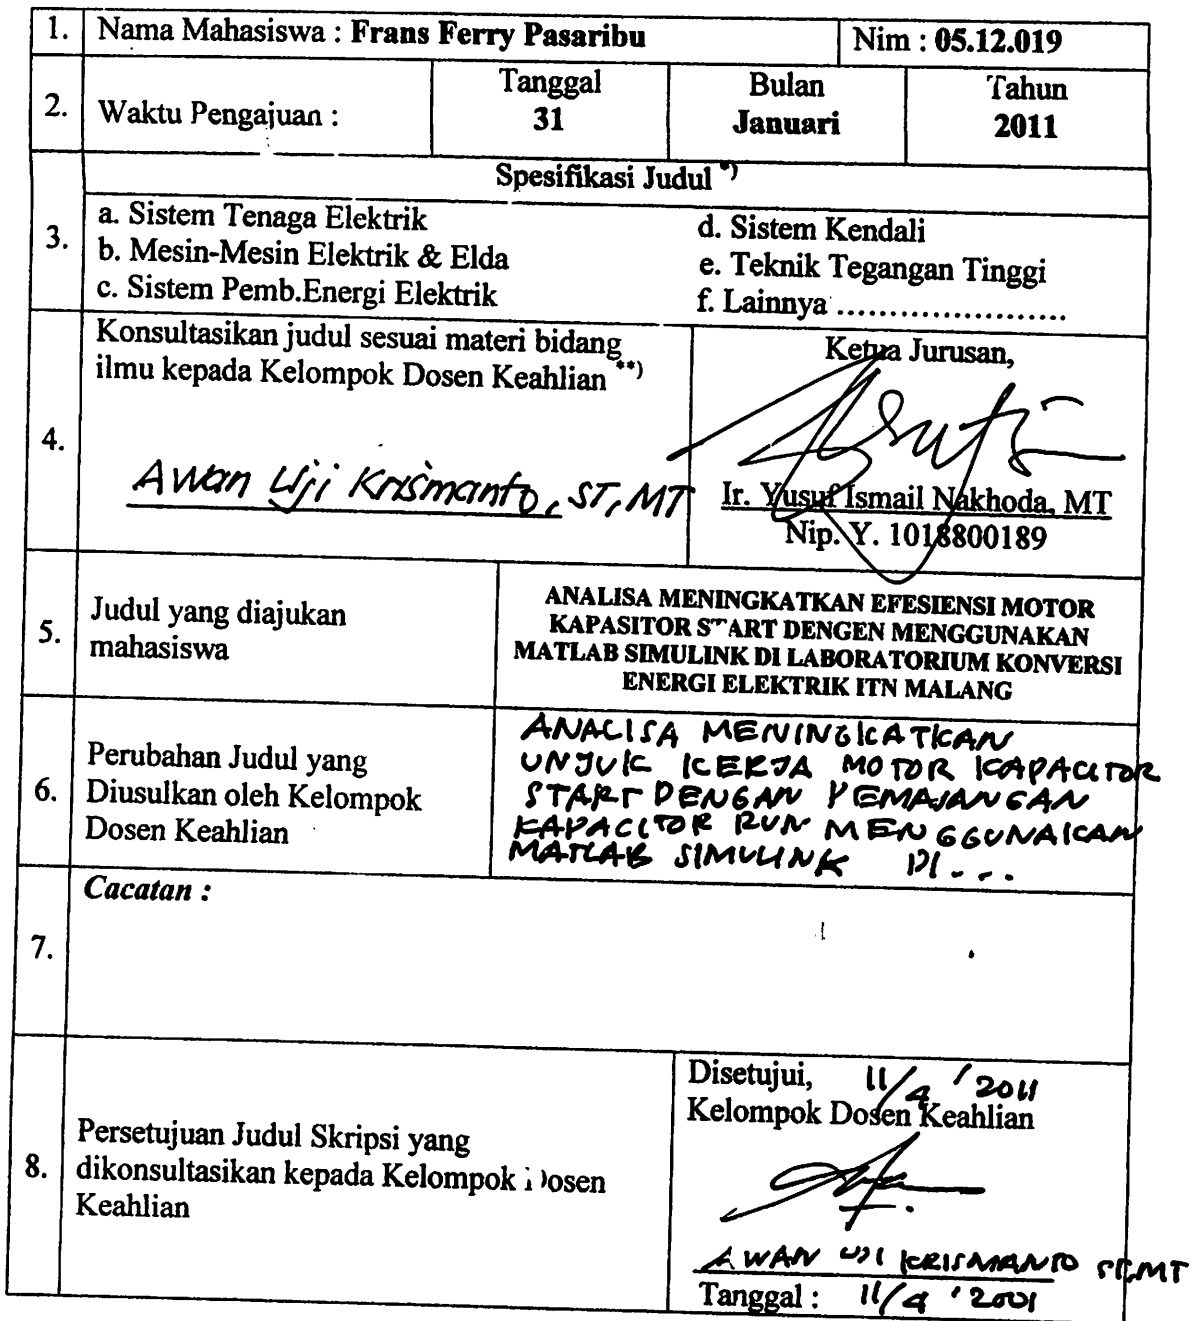 1. Nama Mahasiswa : Frans Ferry Pasaribu Nim : 05.12.019
2. Waktu Pengajuan : Tanggal 31 Bulan Januari Tahun 2011
Spesifikasi Judul *)
3.
a. Sistem Tenaga Elektrik
b. Mesin-Mesin Elektrik & Elda
c. Sistem Pemb.Energi Elektrik
d. Sistem Kendali
e. Teknik Tegangan Tinggi
f. Lainnya ......................
4.
Konsultasikan judul sesuai materi bidang
ilmu kepada Kelompok Dosen Keahlian **)
Awan Uji Krismanto, ST, MT
Ketua Jurusan,
Ir. Yusuf Ismail Nakhoda, MT
Nip. Y. 1018800189
5.
Judul yang diajukan
mahasiswa
ANALISA MENINGKATKAN EFESIENSI MOTOR
KAPASITOR START DENGEN MENGGUNAKAN
MATLAB SIMULINK DI LABORATORIUM KONVERSI
ENERGI ELEKTRIK ITN MALANG
6.
Perubahan Judul yang
Diusulkan oleh Kelompok
Dosen Keahlian
ANALISA MENINGKATKAN
UNJUK KERJA MOTOR KAPACITOR
START DENGAN PEMAJANGAN
KAPACITOR RUN MENGGUNAKAN
MATLAB SIMULINK DI...
7.
Cacatan :
8.
Persetujuan Judul Skripsi yang
dikonsultasikan kepada Kelompok Dosen
Keahlian
Disetujui, 11/4 '2011
Kelompok Dosen Keahlian
AWAN UJI KRISMANTO ST,MT
Tanggal : 11/4 '2001